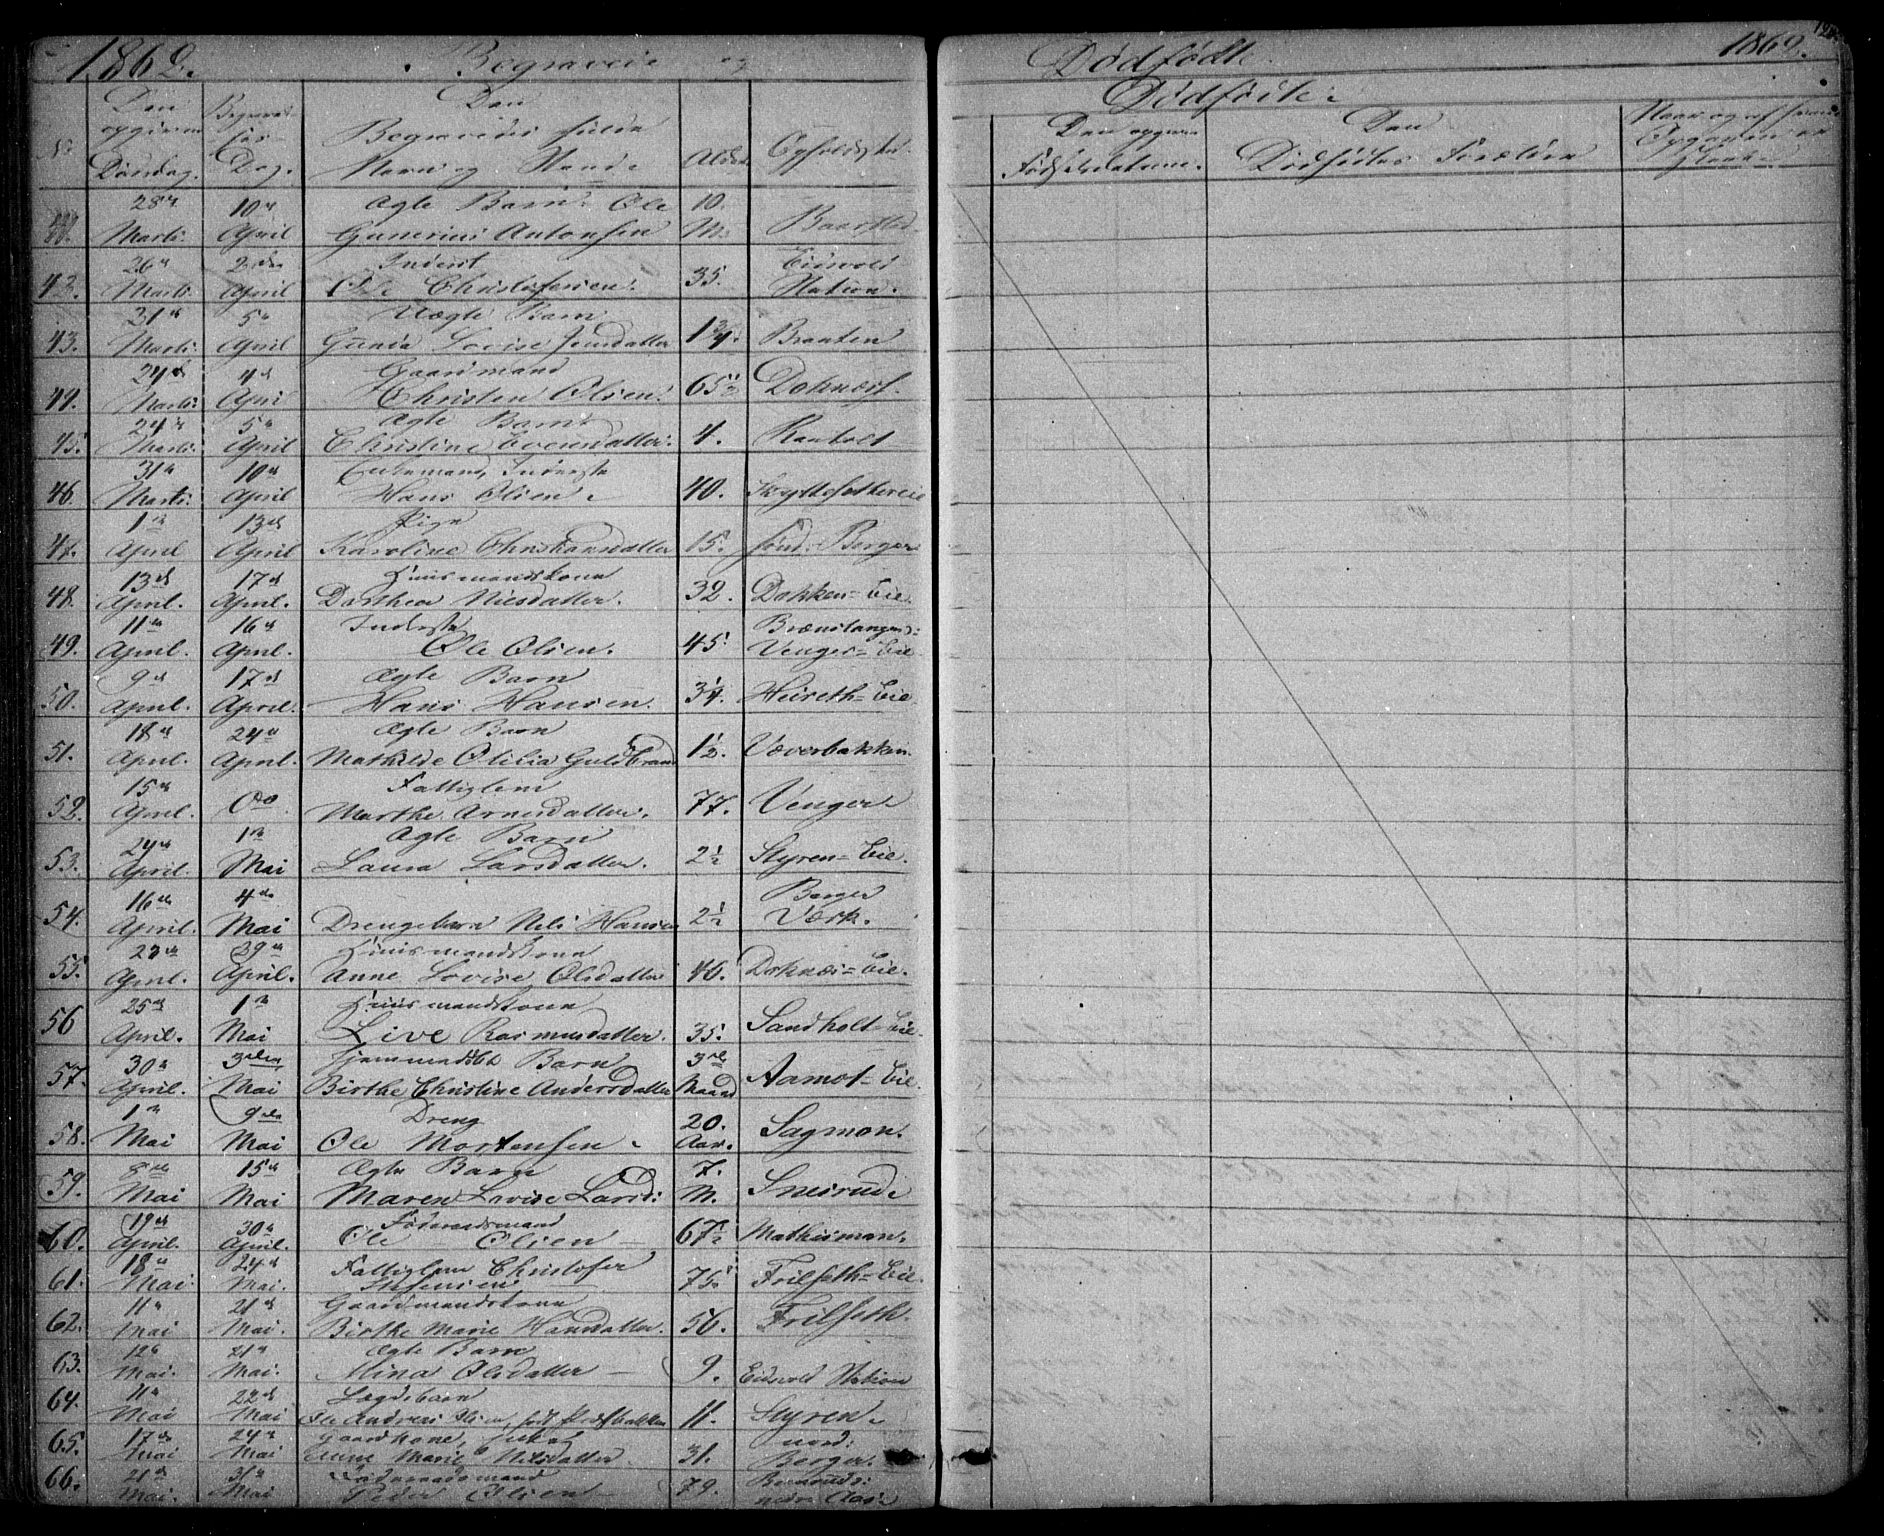 1862. Begravede og
Den opgivne Dødsdag. Begravelses Dag. Den Begravedes fulde Navn og Stand. Alder Opholdssted.
28de Marts 10de April Ægte Barn Ole Gunerius Antonsen 10 M.
43. 26 Marts. 2den April Inderst Ole Christofersen. 35. Eidsvold Station.
43. 31te Marts. 5te April Uægte Barn Lovise Jensdatter 1 3/4. Braaten
44. 24de Marts. 4de April Gaardmand Christen Olsen. 65 1/2 Doknæs.
45. 24de Marts. 5te April Ægte Barn Christine 4. Raaholt
46. 31te Marts. 10de April Enkemand, Inderste Hans Olsen. 40.
47. 1ste April 13de April Pige Karoline Christiansdatter 15. søndr Berger
48. 13de April. 17de April. Huusmandskone Dorthea Nilsdatter. 32. Dokken-Eie.
49. 11te April. 16de April. Inderste Ole Olsen. 45. Venger-Eie
50. 9de April. 17de April. Ægte Barn Hans Hansen. 3 1/4. Heireth-Eie
51. 18de April. 24de April. Ægte Barn Mathilde Olilia Guldbrand 1 1/2. Væverbakken.
52. 15de April. Do Fattiglem Marthe Arnesdatter. 77. Venger
53. 24de April. 1ste Mai Ægte Barn Laura Larsdatter. 2 1/2 Styren-Eie.
54. 16de April. 4de Mai Drengebarn Nils Hansen 2 1/2 Berger Værk.
55. 23de April. 29de April. Huusmandskone Anne Lovise Olsdatter 46. Doknæs-Eie.
56 25de April. 1ste Mai Huusmandskone Live Rasmusdatter. 35. Sandholt-Eie.
57. 30te April. 3die Mai Hjemmedøbt Barn Birthe Christine Andersdatter 3de Maand Aamot-Eie.
58. 1ste Mai 9de Mai Dreng Ole Mortensen. 20. Aar. Sagmon.
59. 8de Mai 15de Mai Ægte Barn Maren Lovise Larsd: 7. M. Sneisrud.
60. 19de April. 30te April. Føderaadsmand Ole Olsen 67 1/2 Mathismon.
61. 18de Mai. 24de Mai. Fattiglem Christofer 75. Frilseth-Eie.
62. 11te Mai 21de Mai. Gaardmandskone Birthe Marie Hansdatter. 56. Frilseth.
63. 12te Mai. 21de Mai. Ægte Barn Mina Olsdatter 9. Eidsvold Station
64. 11te Mai 22de Mai Lægdsbarn Ole Andreas Olsen, født 11. Styren.
65. 17de Mai 24de Mai Gaardkone, Anne Marie Nilsdatter 31. nord: Berger.
66. 21de Mai. 31te Mai Føderaadsmand Peder Olsen 79.
Dødfødte. 1862.
Dødfødte.
Den opgivne Fødselsdatum. Den Dødfødtes Forældre